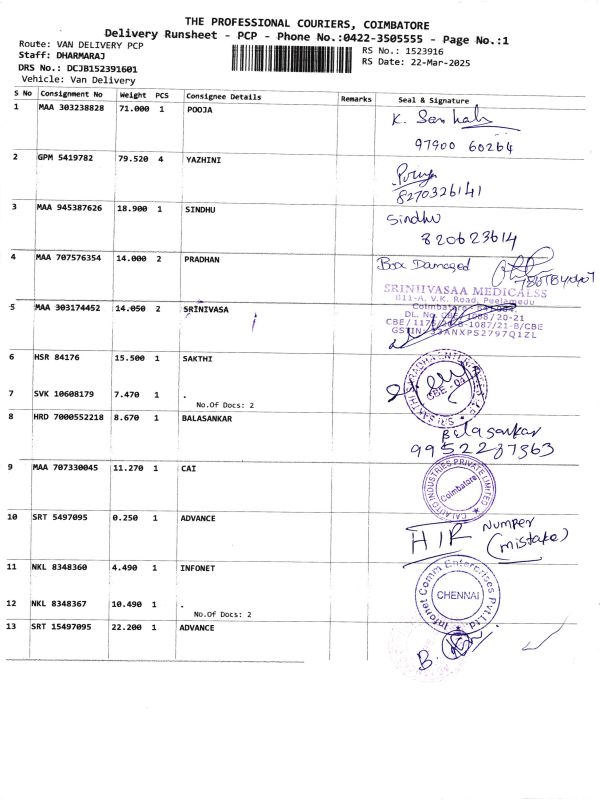 THE PROFESSIONAL COURIERS, COIMBATORE
Delivery Runsheet - PCP - Phone No.:0422-3505555 - Page No.:1
Route: VAN DELIVERY PCP
RS No.: 1523916
Staff: DHARMARAJ
RS Date: 22-Mar-2025
DRS No.: DCJB152391601
Vehicle: Van Delivery
S No Consignment No Weight PCS Consignee Details Remarks Seal & Signature
1 MAA 303238828 71.000 1 POOJA
K.
97900 60264
2 GPM 5419782 79.520 4 YAZHINI
8270326141
3 MAA 945387626 18.900 1 SINDHU
Sindhu
820623614
4 MAA 707576354 14.000 2 PRADHAN
Box Damaged
SRINIIVASAA MEDICALSS
811-A, V.K. Road, Peelamedu
Coimbatore
5 MAA 303174452 14.050 2 SRINIVASA
DL. No.
6 HSR 84176 15.500 1 SAKTHI
7 SVK 10608179 7.470 1 .
No.Of Docs: 2
8 HRD 7000552218 8.670 1 BALASANKAR
Balasankar
9952287363
9 MAA 707330045 11.270 1 CAI
INDUSTRIES PRIVATE LIMITED
Coimbatore
10 SRT 5497095 0.250 1 ADVANCE
HIR Number
(mistake)
11 NKL 8348360 4.490 1 INFONET
Infonet Comm Enterprises Pvt.Ltd.
CHENNAI
12 NKL 8348367 10.490 1 .
No.Of Docs: 2
13 SRT 15497095 22.200 1 ADVANCE
B.